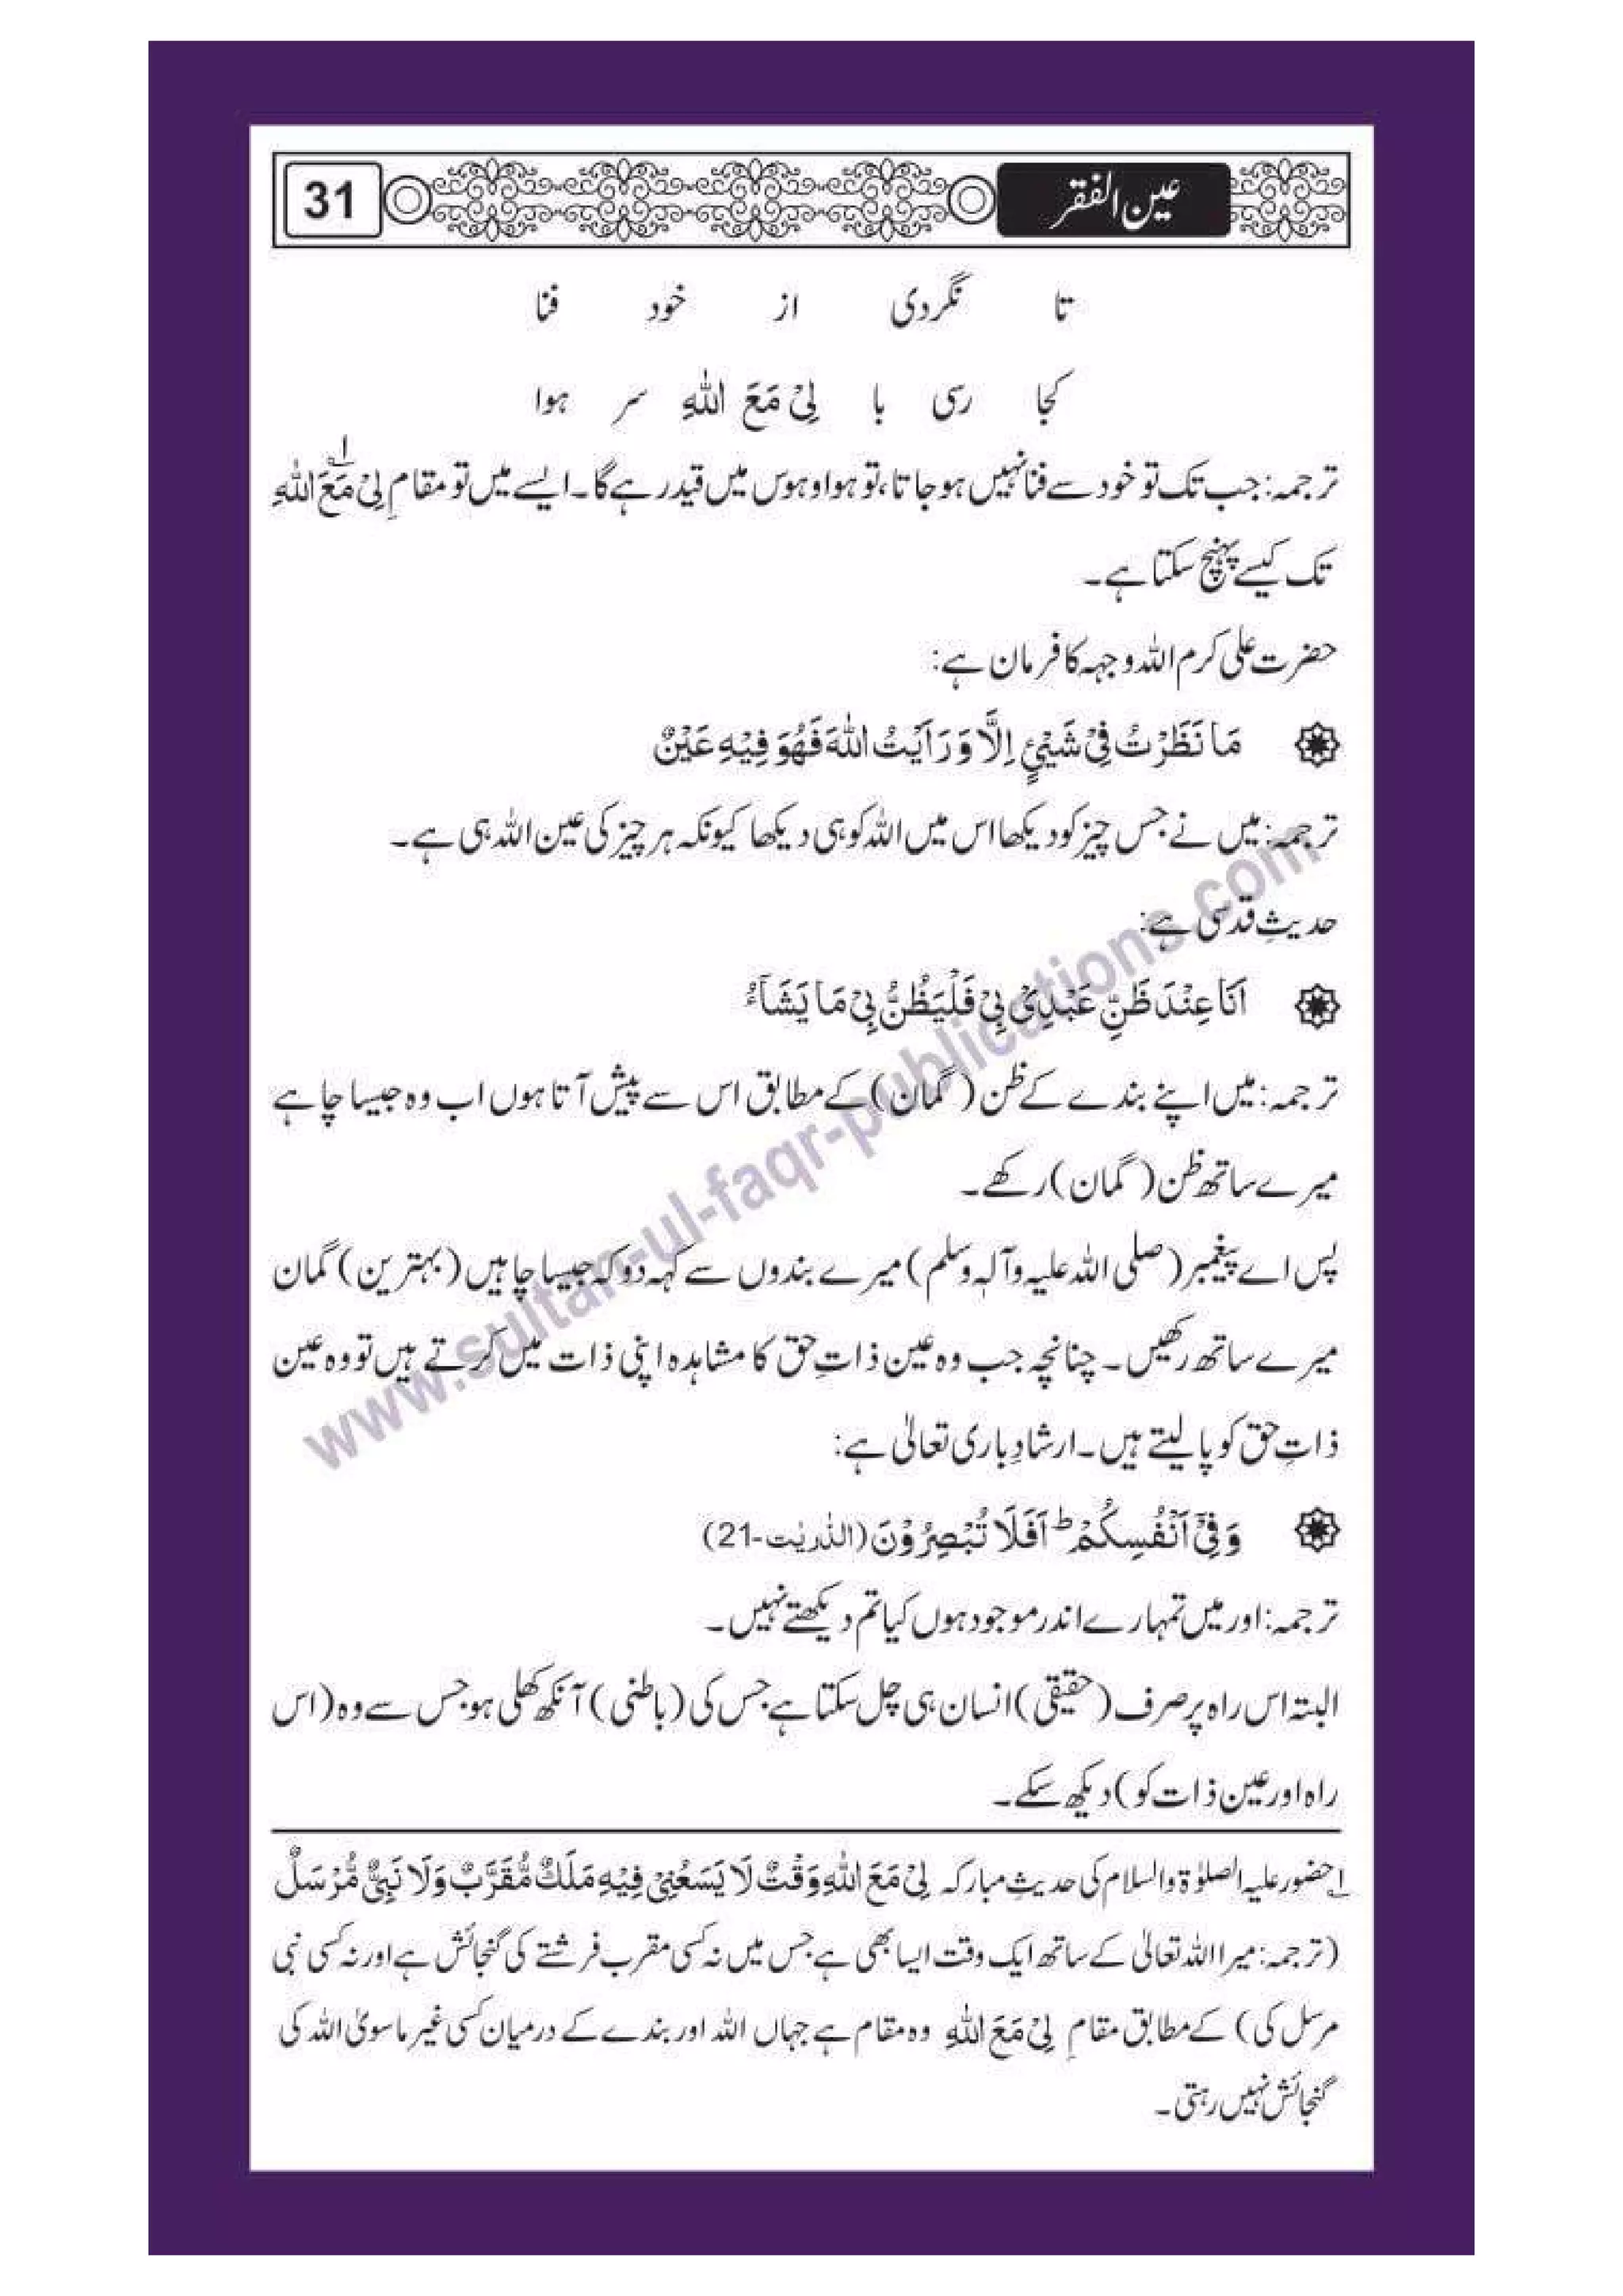 31
عین الفقر
تا نگردی از خود فنا
کجا رسی با لِیْ مَعَ اللهِ سر ہوا
ترجمہ: جب تک تو خود سے فنا نہیں ہو جاتا، تو ہوا و ہوس میں قید رہے گا۔ ایسے میں تو مقامِ لِیْ مَعَ اللهِ ؎۱
تک کیسے پہنچ سکتا ہے۔
حضرت علی کرم اللہ وجہہ کا فرمان ہے:
مَا نَظَرْتُ فِیْ شَیْئٍ اِلَّا وَ رَاَیْتُ اللهَ فَهُوَ فِیْهِ عَیْنٌ
ترجمہ: میں نے جس چیز کو دیکھا اس میں اللہ کو ہی دیکھا کیونکہ ہر چیز کی عین اللہ ہی ہے۔
حدیثِ قدسی ہے:
اَنَا عِنْدَ ظَنِّ عَبْدِیْ بِیْ فَلْیَظُنُّ بِیْ مَا یَشَآءُ
ترجمہ: میں اپنے بندے کے ظن (گمان) کے مطابق اس سے پیش آتا ہوں اب وہ جیسا چاہے
میرے ساتھ ظن (گمان) رکھے۔
پس اے پیغمبر (صلی اللہ علیہ وآلہٖ وسلم) میرے بندوں سے کہہ دو کہ جیسا چاہیں (بہترین) گمان
میرے ساتھ رکھیں۔ چنانچہ جب وہ عین ذاتِ حق کا مشاہدہ اپنی ذات میں کرتے ہیں تو وہ عین
ذاتِ حق کو پا لیتے ہیں۔ ارشادِ باری تعالیٰ ہے:
وَ فِیْٓ اَنْفُسِكُمْ ؕ اَفَلَا تُبْصِرُوْنَ (الذّٰریٰت-21)
ترجمہ: اور میں تمہارے اندر موجود ہوں کیا تم دیکھتے نہیں۔
البتہ اس راہ پر صرف (حقیقی) انسان ہی چل سکتا ہے جس کی (باطنی) آنکھ کھلی ہو جس سے وہ (اس
راہ اور عین ذات کو) دیکھ سکے۔
؎۱ حضور علیہ الصلوٰۃ والسلام کی حدیثِ مبارکہ لِیْ مَعَ اللهِ وَقْتٌ لَا یَسَعُنِیْ فِیْهِ مَلَكٌ مُّقَرَّبٌ وَلَا نَبِیٌّ مُّرْسَلٌ
(ترجمہ: میرا اللہ تعالیٰ کے ساتھ ایک وقت ایسا بھی ہے جس میں نہ کسی مقرب فرشتے کی گنجائش ہے اور نہ کسی نبی
مرسل کی) کے مطابق مقامِ لِیْ مَعَ اللهِ وہ مقام ہے جہاں اللہ اور بندے کے درمیان کسی غیر ماسویٰ اللہ کی
گنجائش نہیں رہتی۔
www.sultan-ul-faqr-publications.com